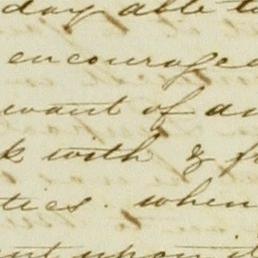 day able to
encouraged
want of an
k with & f
ties. when
nt upon it